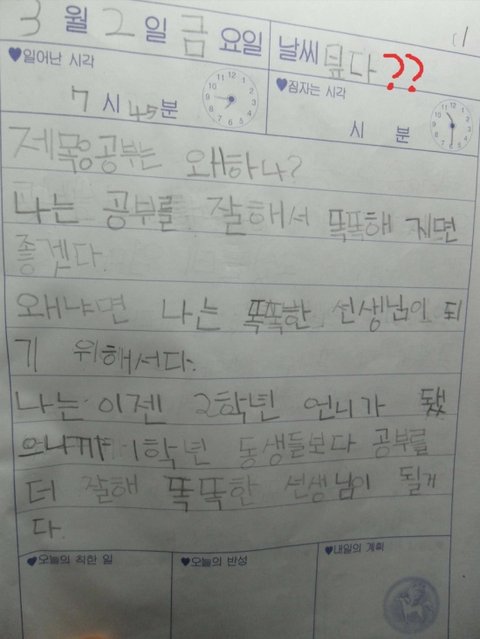 3 월 2 일 금 요일 날씨 덥다 ??
♥일어난 시각 ♥잠자는 시각
7 시 45 분 시 분
제목:공부는 왜하나?
나는 공부를 잘해서 똑똑해 지면
좋겠다.
왜냐면 나는 똑똑한 선생님이 되
기 위해서다.
나는 이젠 2학년 언니가 됐
으니까 1학년 동생들보다 공부를
더 잘해 똑똑한 선생님이 될거
다.
♥오늘의 착한 일 ♥오늘의 반성 ♥내일의 계획